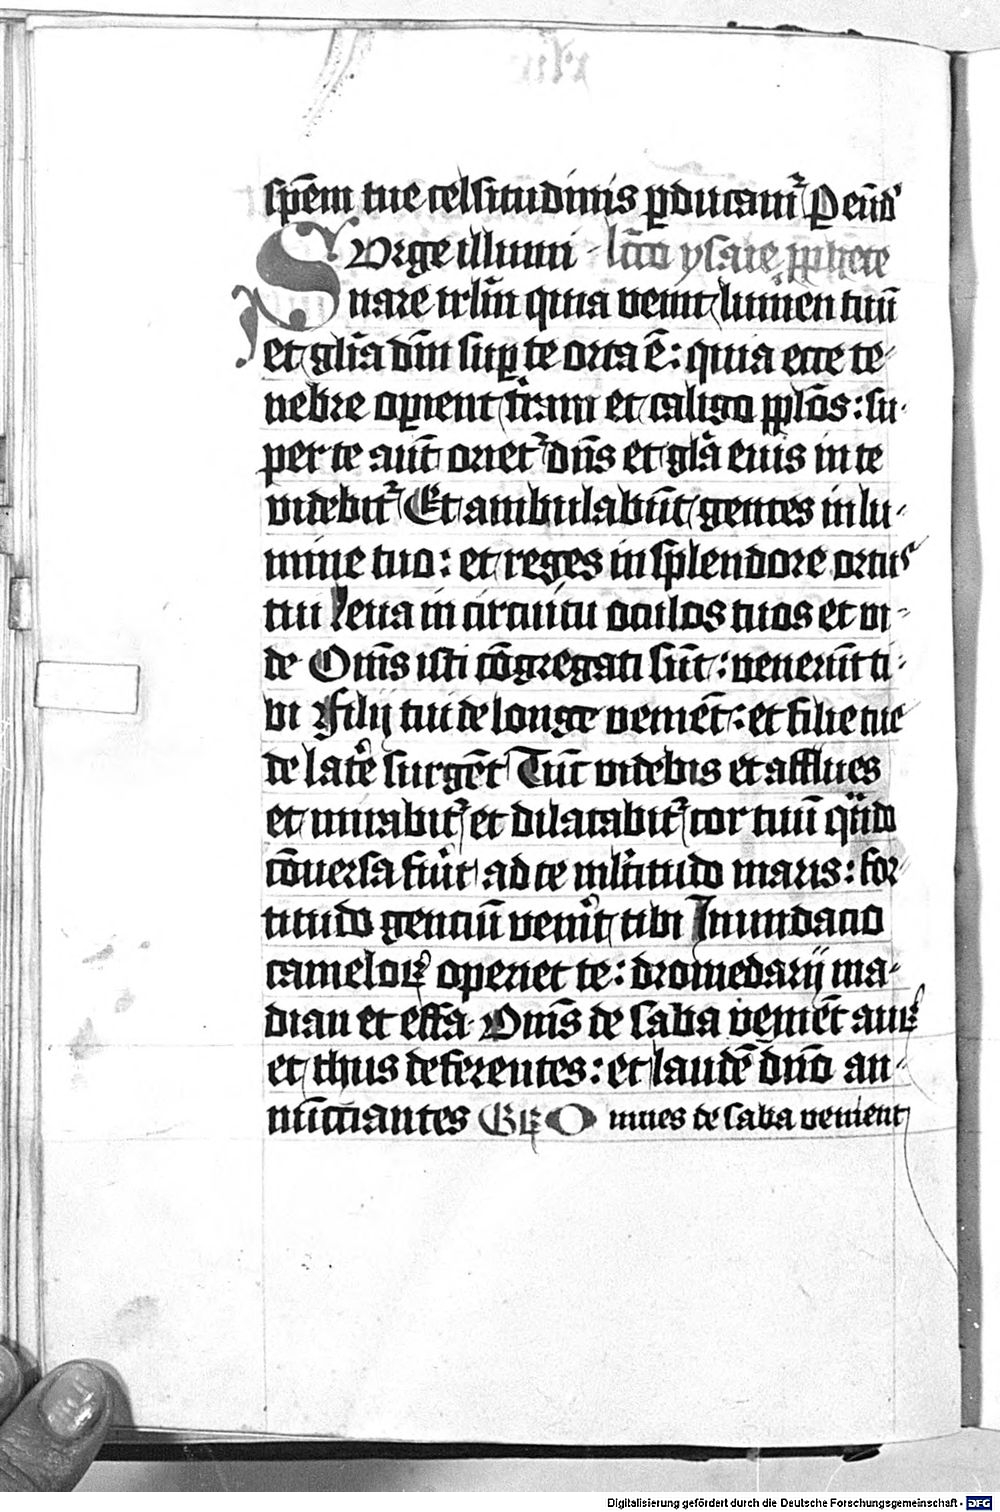 spēm tue celsitudinis ꝑducamur̾ P eūd'
SVrge illumi- lc̄tio ysaie ꝓphete
nare irl̄m quia venit lumen tuū
et gl̄ia dn̄i suꝑ te orta ē : quia ecce te-
nebre oꝑient t̾ram et caligo pp̄lōs : su-
per te aut̄ oriet̾ dn̄s et gl̄a eius in te
videbit̾ Et ambulabūt gentes in lu-
mine tuo : et reges in splendore ortus
tui Leua in circuitu oculos tuos et vi-
de Om̄s isti cōgregati sūt : venerūt ti-
bi Filij tui de longe veniēt : et filie tue
de lat̾e surgēt Tūc videbis et afflues
et mirabit̾ et dilatabit̾ cor tuū qn̄do
cōuersa fu̾it ad te ml̾titudo maris : for-
titudo genciū ven̾it tibi Inundacio
cameloꝝ operiet te : dromedarij ma-
dian et effa Om̄s de saba veniēt auꝝ
et thus deferentes : et laudē dn̄o an-
nūcciantes Gꝝ O mnes de saba venient
Digitalisierung gefördert durch die Deutsche Forschungsgemeinschaft - DFG